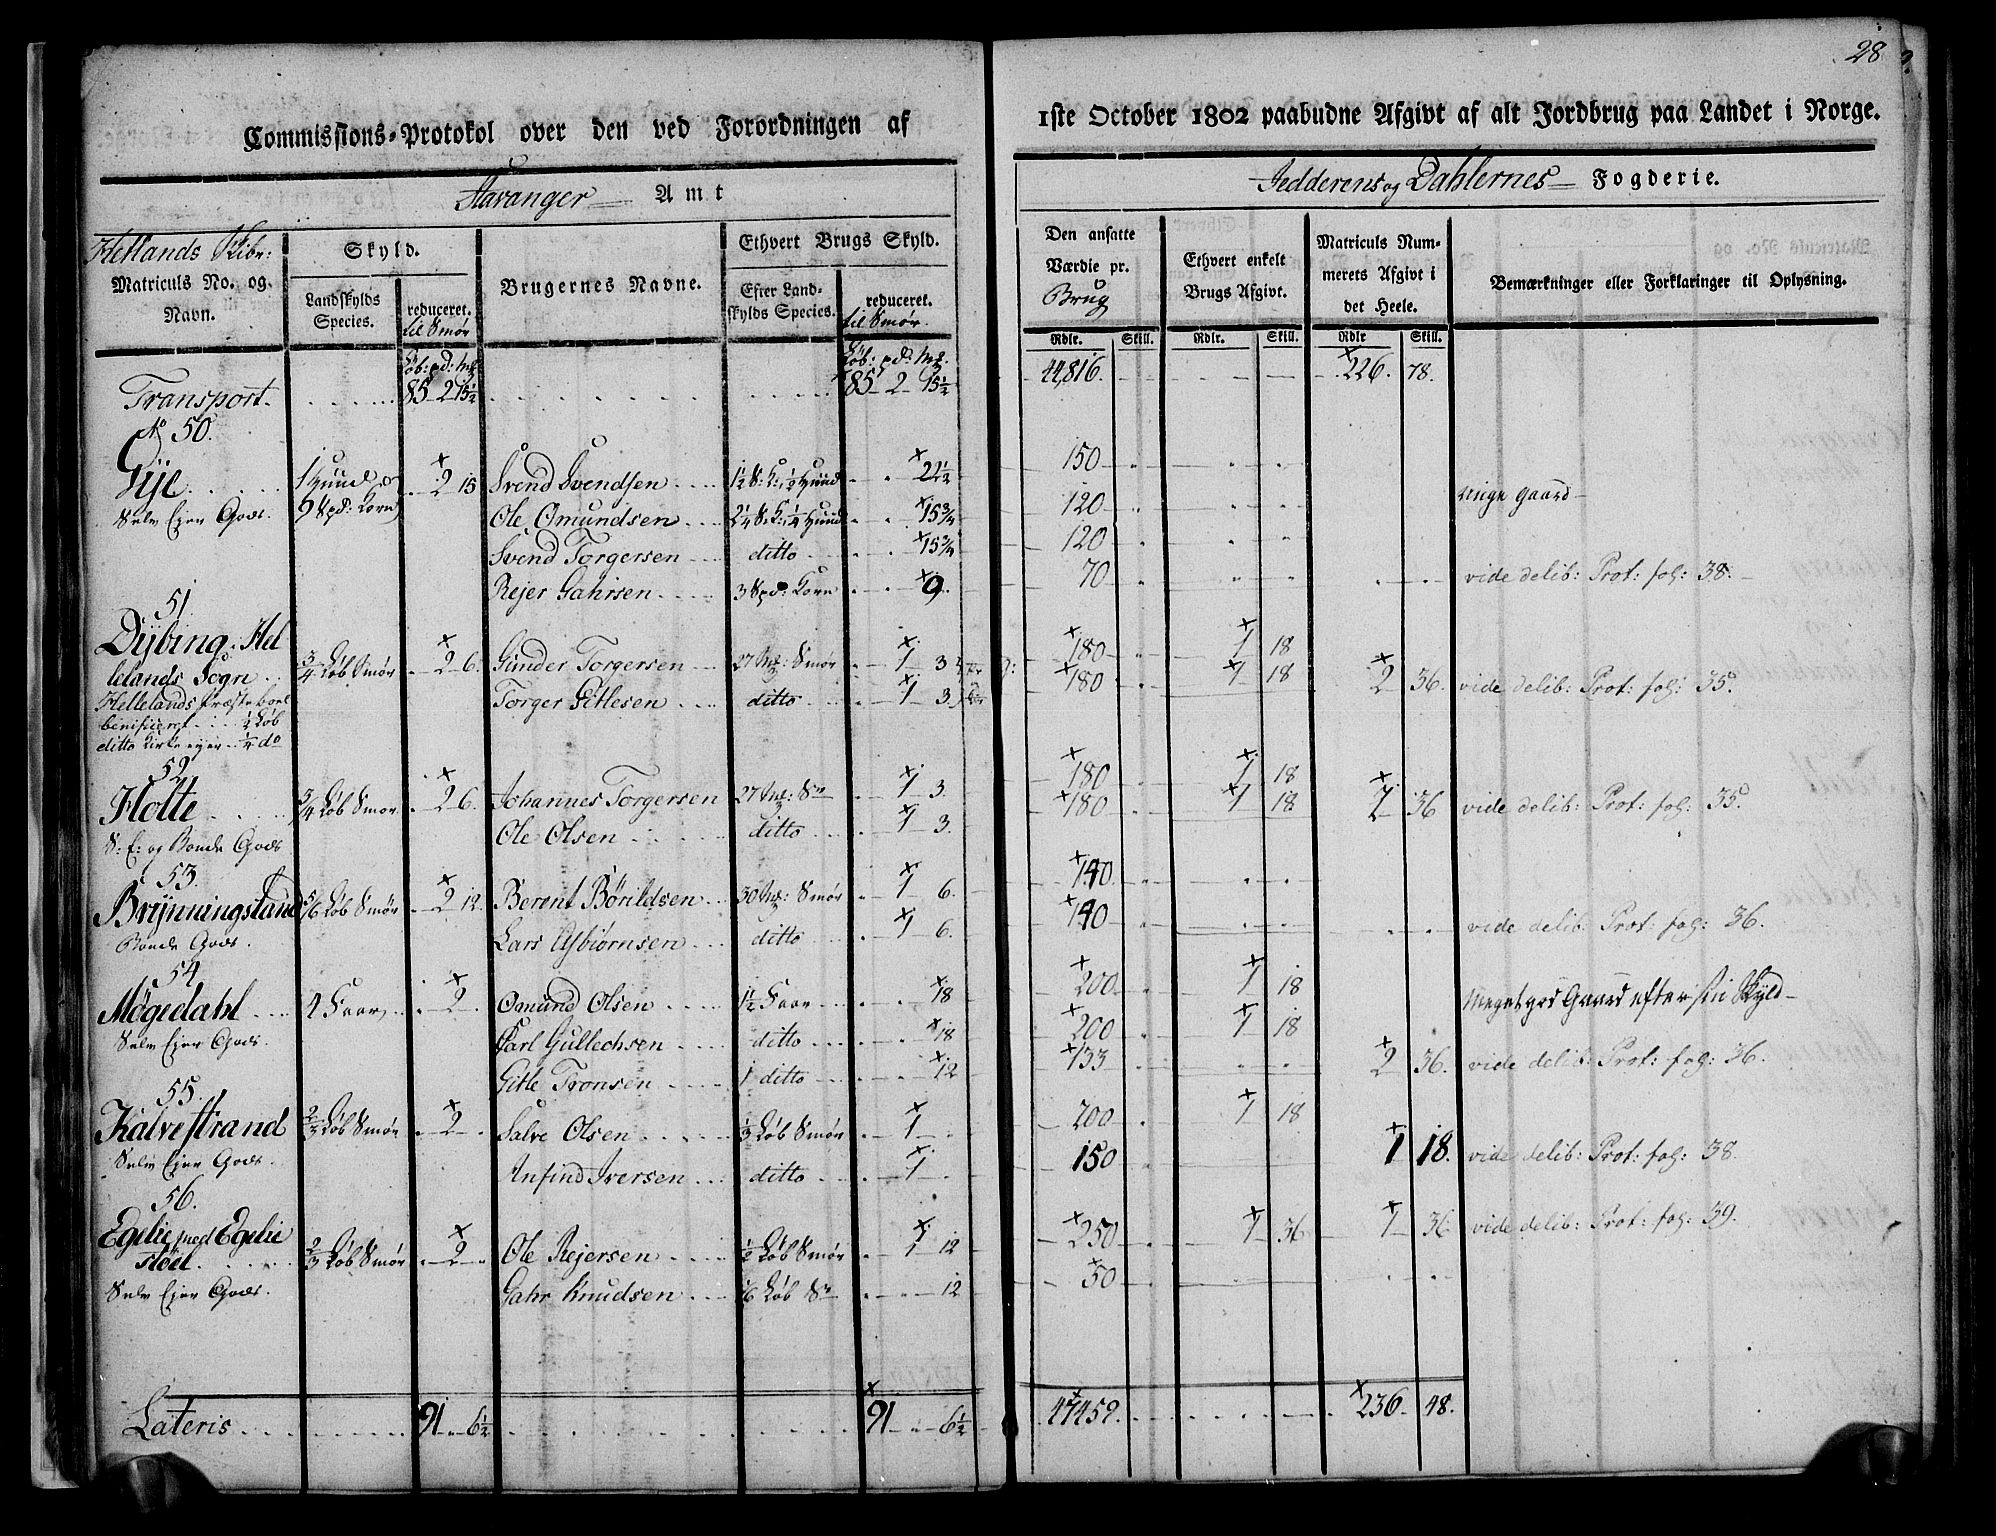 28
Commissions-Protokol over den ved Forordningen af
1ste October 1802 paabudne Afgivt af alt Jordbrug paa Landet i Norge.
Stavanger Amt
Jedderens og Dahlernes Fogderie.
Hetlands Skibr:
Matriculs No. og Navn.
Skyld.
Landskylds Species.
reduceret. til Smør
Brugernes Navne.
Ethvert Brugs Skyld.
Efter Landskylds Species.
reduceret. til Smør
Den ansatte Værdie pr. Brug
Ethvert enkelt Brugs Afgivt.
Matriculs Nummerets Afgivt i det Heele.
Bemærkninger eller Forklaringer til Oplysning.
Rdlr. Skill. Rdlr. Skill. Rdlr Skill.
Løb: pd: Mk Løb: pd: Mk
Transport. 85 2 15½ 85 2 15½ 44,816. 226. 78.
No 50.
Gÿe 1 Huud og 2 15 Svend Svendsen 1½ S: K: ½ Huud 22½ 150
Selv Ejer Gods 9 Spd: Korn Ole Omundsen 2¼ S: K: ¼ Huud 15¾ 120 ringe gaard
Svend Torgersen ditto 15¾ 120
Rejer Gahrsen 3 Spd: Korn 9. 70 vide delib: Prot: fol: 38.
51.
Dÿbing. Hel
lelands Sogn ¾ Løb Smør 2 6. Gunder Torgersen 27 Mk: Smør 1 3 180 1 18
Hellelands Præsteboel Torger Gitlesen ditto 1 3. 180 1 18 2 36. vide delib: Prot: fol: 35.
benificeret ½ Løb
ditto Kirke ejer ¼ do
52.
Holte ¾ Løb Smør 2 6. Johannes Torgersen 27 Mk: Sr 1 3. 180 1 18
S: E: og Bonde Gods Ole Olsen ditto 1 3. 180 1 18 2 36 vide delib: Prot: fol: 35.
53.
Brÿnningsland 5/6 Løb Smør 2 12. Berent Börildsen 30 Mk: Smør 1 6. 140
Bonde Gods. Lars Asbiørnsen ditto 1 6. 140 vide delib: Prot: fol: 36.
54
Møgedahl 4 Faar 2 Omund Olsen 1½ Faar 18 200 1 18 Meget god Gaard efter sin Skyld
Selv Ejer Gods. Carl Gullechsen ditto 18 200 1 18
Gitle Tronsen 1 ditto 12 133 2 36. vide delib: Prot: fol: 36.
55.
Kalvestrand 2/3 Løb Smør 2 Salve Olsen 1/3 Løb Smør 1 200 1 18
Selv Ejer Gods. Anfind Iversen ditto 1 150 1 18. vide delib: Prot: fol: 38.
56.
Egelie med Egelie
støel 2/3 Løb Smør 2 Ole Rejersen ½ Løb Smør 1 12 250 1 36 1 36 vide delib: Prot: fol: 39.
Selv Ejer Gods. Gahr Knudsen 1/6 Løb Sr 12 50
Lateris 91 6½ 91 6½ 47459. 236. 48.